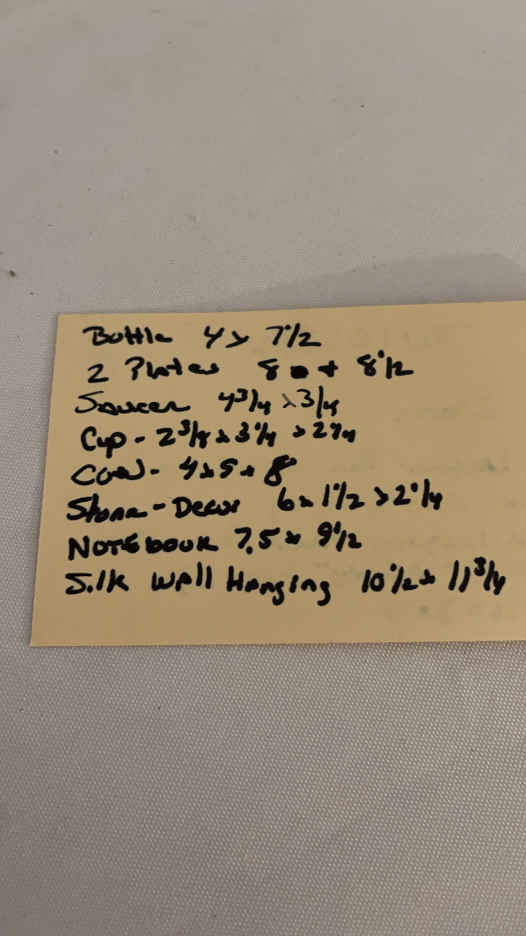 Bottle 4 x 7 1/2
2 Plates 8 + 8 1/2
Saucer 4 3/4 x 3/4
Cup - 2 3/4 x 3 1/4 x 2 3/4
4 x 5 x 8
Stone - Decor 6 x 1 1/2 x 2 1/4
Notebook 7.5 x 9 1/2
Silk Wall Hanging 10 1/2 x 11 3/4